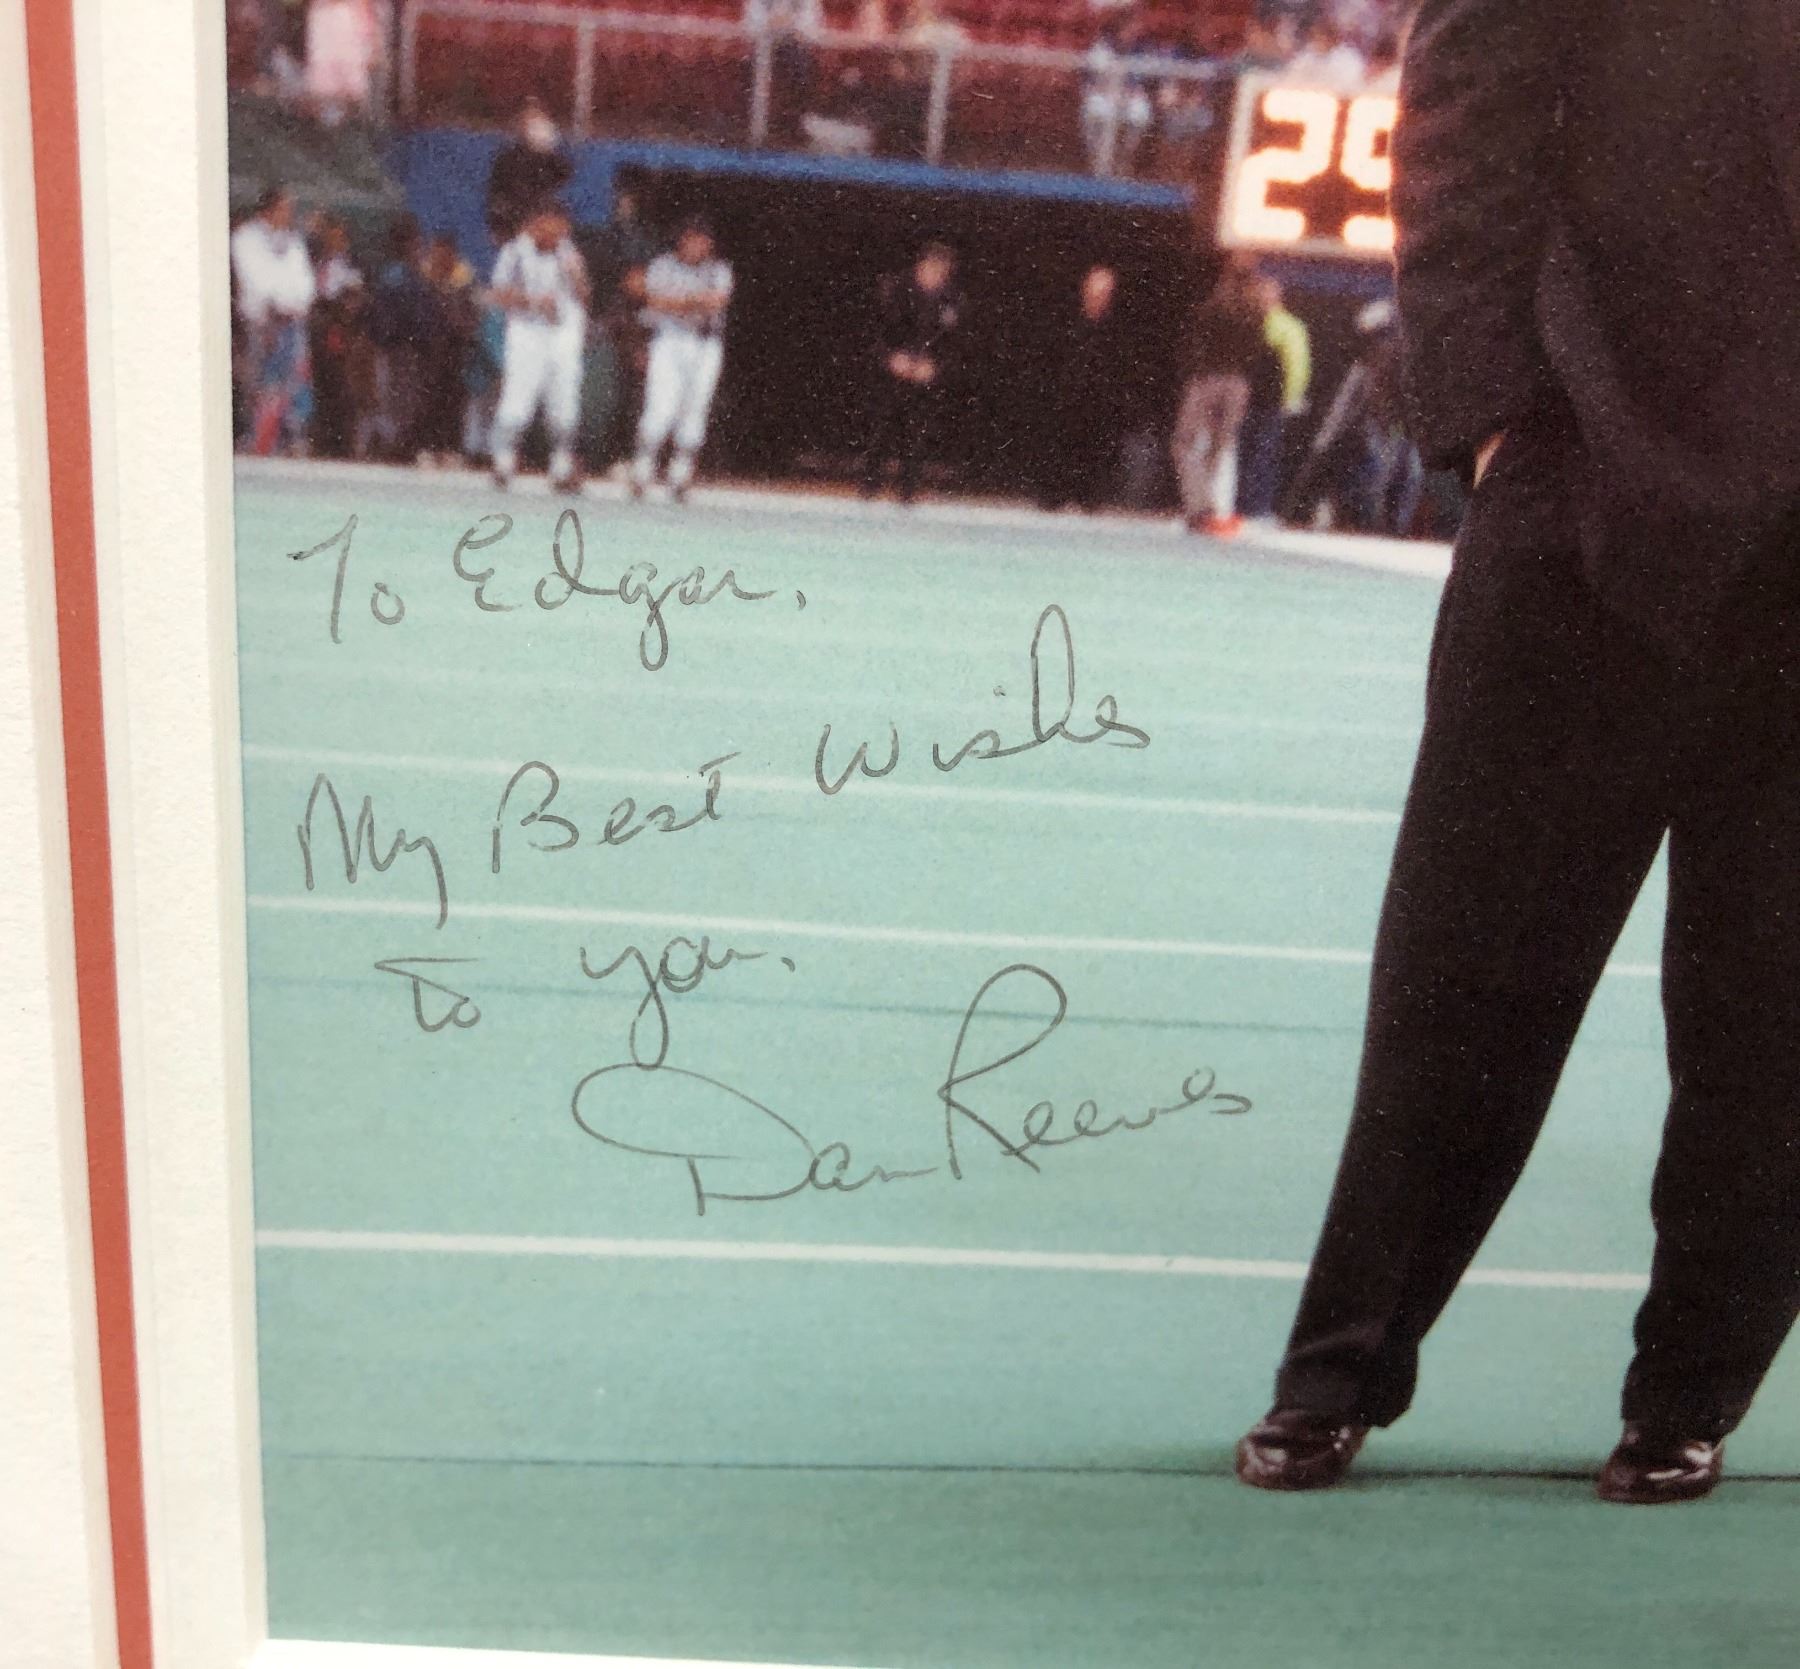 25
To Edgar,
My Best Wishes
To you,
Dan Reeves